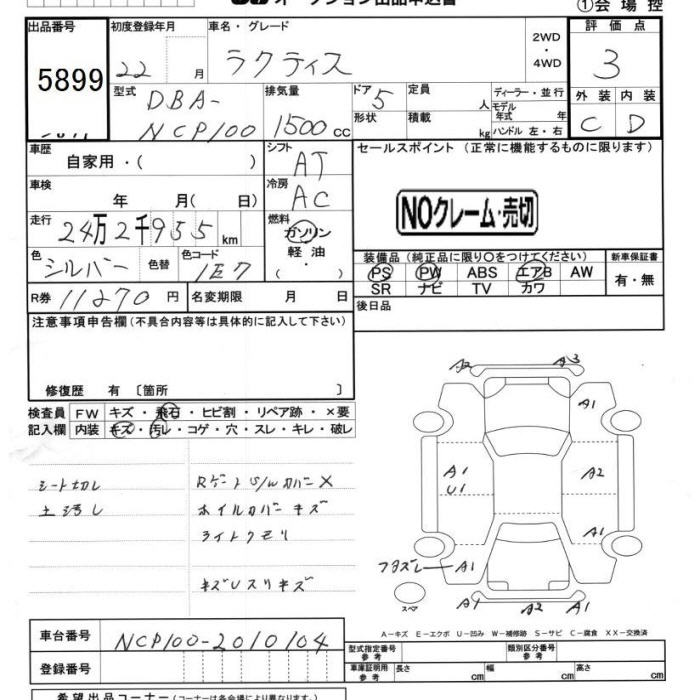 オークション出品申込書
①会場控
出品番号
5899
初度登録年月
22 月
車名・グレード
ラクティス
2WD
・
4WD
評価点
3
外装 内装
C D
型式
DBA-
NCP100
排気量
1500 cc
ドア 5
形状
定員 人
積載 kg
ディーラー・並行
モデル年式 年
ハンドル 左・右
車歴
自家用・( )
シフト
AT
車検
年 月( 日)
冷房
AC
走行
24万2千955 km
燃料
ガソリン
軽油
( ・ )
色
シルバー
色替
色コード
1E7
R券 11270 円
名変期限 月 日
セールスポイント(正常に機能するものに限ります)
NOクレーム・売切
装備品(純正品に限り○をつけてください)
PS PW ABS エアB AW
SR ナビ TV カワ
新車保証書
有・無
後日品
注意事項申告欄(不具合内容等は具体的に記入して下さい)
修復歴 有 〔箇所 〕
検査員
記入欄
FW キズ・飛石・ヒビ割・リペア跡・×要
内装 キズ・汚レ・コゲ・穴・スレ・キレ・破レ
シート切レ
土汚レ
Rゲート S/W カバー X
ホイルカバーキズ
ライトクモリ
キズUスリキズ
A2 A3
A1
A1
U1
A2
A1
フタズレ A1
A1
A1 A2
スペア
A－キズ E－エクボ U－凹み W－補修跡 S－サビ C－腐食 XX－交換済
車台番号
NCP100-2010104
登録番号
型式指定番号
参考
類別区分番号
参考
車庫証明用
参考
長さ cm
幅 cm
高さ cm
希望出品コーナー(コーナーは各会場により異なります。)